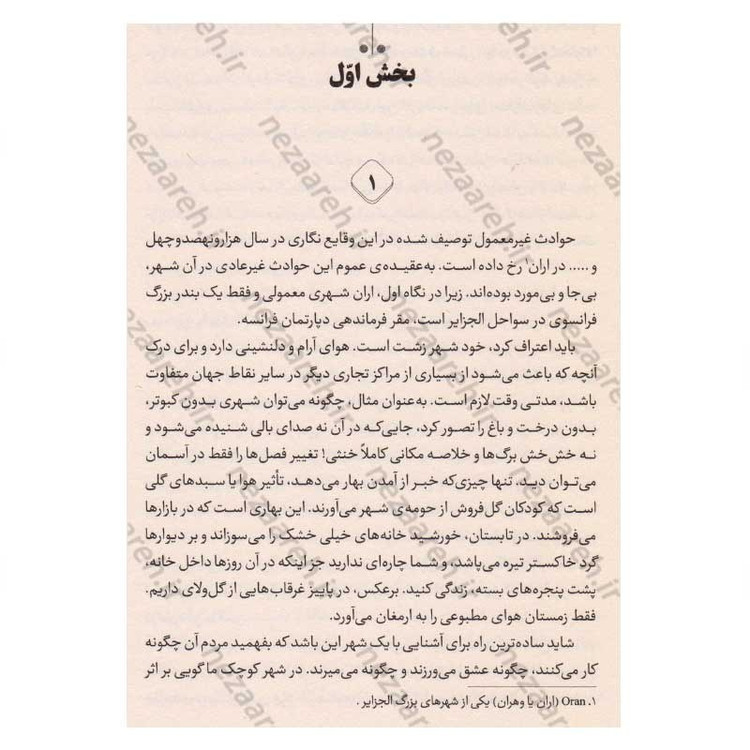 بخش اوّل
۱
حوادث غیرمعمول توصیف شده در این وقایع نگاری در سال هزارونهصدوچهل
و ..... در اران۱ رخ داده است. به‌عقیده‌ی عموم این حوادث غیرعادی در آن شهر،
بی‌جا و بی‌مورد بوده‌اند. زیرا در نگاه اول، اران شهری معمولی و فقط یک بندر بزرگ
فرانسوی در سواحل الجزایر است، مقر فرماندهی دپارتمان فرانسه.
باید اعتراف کرد، خود شهر زشت است. هوای آرام و دلنشینی دارد و برای درک
آنچه که باعث می‌شود از بسیاری از مراکز تجاری دیگر در سایر نقاط جهان متفاوت
باشد، مدتی وقت لازم است. به‌عنوان مثال، چگونه می‌توان شهری بدون کبوتر،
بدون درخت و باغ را تصور کرد، جایی‌که در آن نه صدای بالی شنیده می‌شود و
نه خش‌خش برگ‌ها و خلاصه مکانی کاملاً خنثی! تغییر فصل‌ها را فقط در آسمان
می‌توان دید، تنها چیزی‌که خبر از آمدن بهار می‌دهد، تأثیر هوا یا سبدهای گلی
است که کودکان گل‌فروش از حومه‌ی شهر می‌آورند. این بهاری است که در بازارها
می‌فروشند. در تابستان، خورشید خانه‌های خیلی خشک را می‌سوزاند و بر دیوارها
گرد خاکستر تیره می‌پاشد، و شما چاره‌ای ندارید جز اینکه در آن روزها داخل خانه،
پشت پنجره‌های بسته، زندگی کنید. برعکس، در پاییز غرقاب‌هایی از گل‌ولای داریم.
فقط زمستان هوای مطبوعی را به ارمغان می‌آورد.
شاید ساده‌ترین راه برای آشنایی با یک شهر این باشد که بفهمید مردم آن چگونه
کار می‌کنند، چگونه عشق می‌ورزند و چگونه می‌میرند. در شهر کوچک ما گویی بر اثر
۱. Oran (اران یا وهران) یکی از شهرهای بزرگ الجزایر .
nezaareh.ir